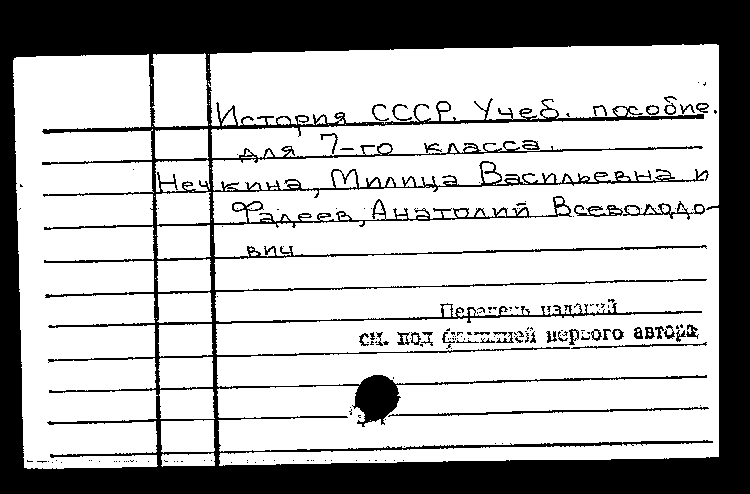 История СССР. Учеб. пособие.
для 7-го класса.
Нечкина, Милица Васильевна и
Фадеев, Анатолий Всеволодо-
вич
Перечень изданий
см. под фамилией первого автора